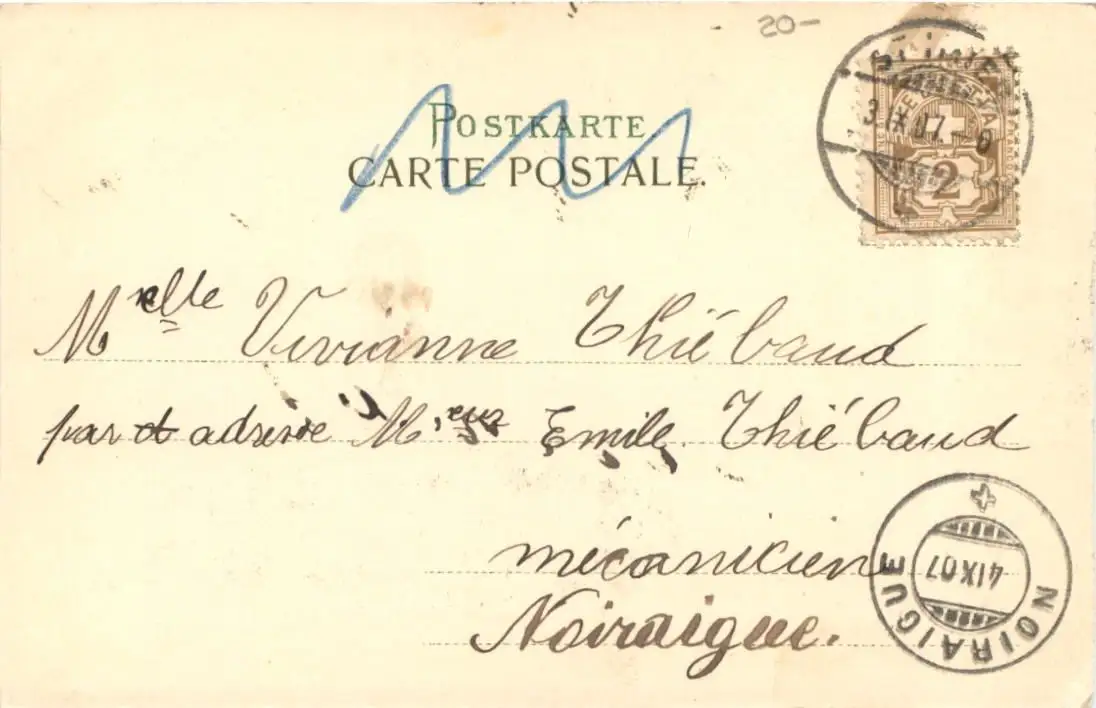 20-
POSTKARTE.
CARTE POSTALE.
3. IX 07.
2
Melle Vivianne Thiébaud
par adresse Mr. Emile Thiébaud
mécanicien
Noiraigue.
NOIRAIGUE
4 IX 07